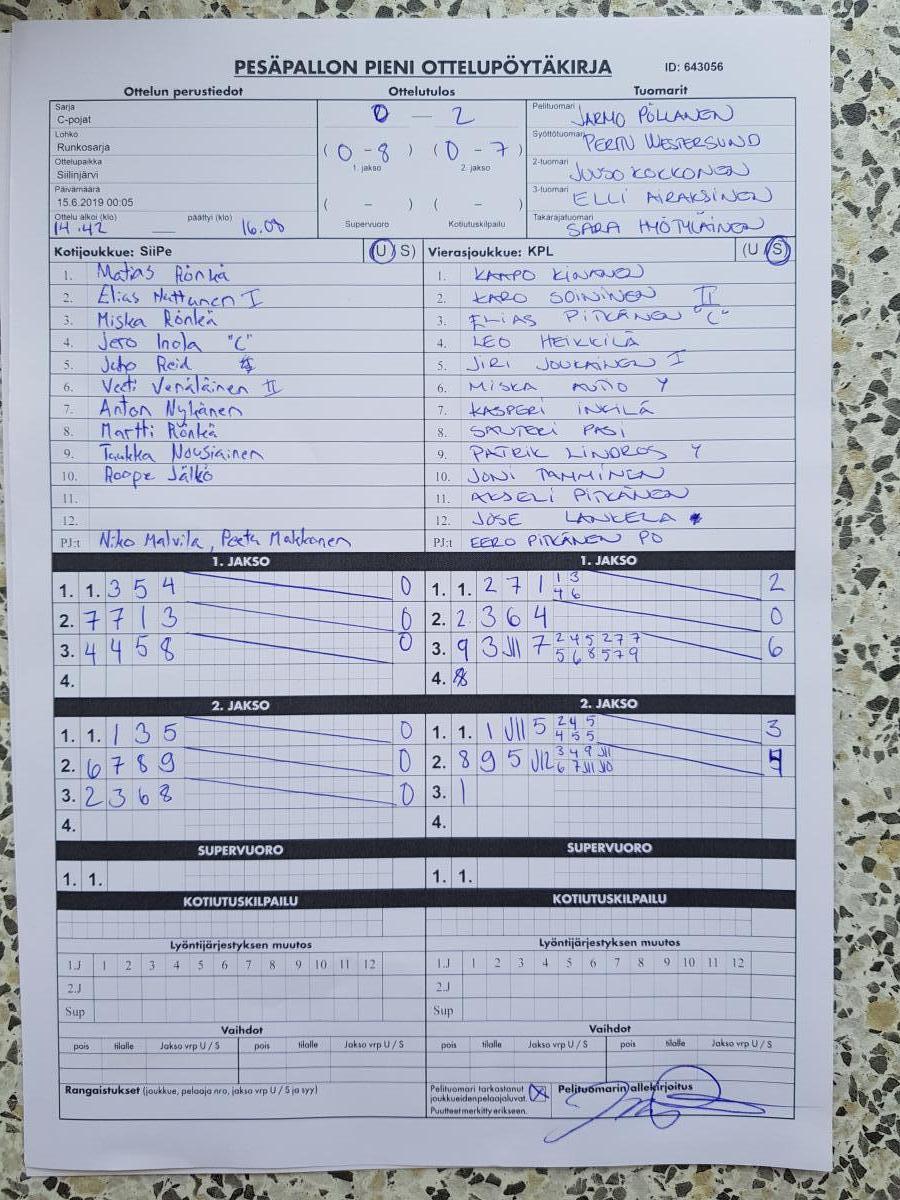 PESÄPALLON PIENI OTTELUPÖYTÄKIRJA ID: 643056
Ottelun perustiedot Ottelutulos Tuomarit
Sarja
C-pojat
Lohko
Runkosarja
Ottelupaikka
Siilinjärvi
Päivämäärä
15.6.2019 00:05
Ottelu alkoi (klo) päättyi (klo)
14.42 — 16.08
0 — 2
(0-8) (0-7)
1. jakso 2. jakso
( - ) ( - )
Supervuoro Kotiutuskilpailu
Pelituomari JARMO PÖLLÄNEN
Syöttötuomari PERTTU WESTERSUND
2-tuomari JUUSO KOKKONEN
3-tuomari ELLI AIRAKSINEN
Takarajatuomari SARA HYÖTYLÄINEN
Kotijoukkue: SiiPe (U S)
1. Matias Rönkä
2. Elias Huttunen I
3. Miska Rönkä
4. Jero Inola "C"
5. Juho Reid
6. Veeti Venäläinen II
7. Anton Nykänen
8. Martti Rönkä
9. Tuukka Nousiainen
10. Roope Jälkö
11.
12.
PJ:t Niko Malvila, Peetu Makkonen
Vierasjoukkue: KPL (U S)
1. KAAPO KINANEN
2. KARO SOININEN II
3. ELIAS PITKÄNEN "C"
4. LEO HEIKKILÄ
5. JIRI JOUKAINEN I
6. MISKA AUTIO Y
7. KASPERI INKILÄ
8. SANTERI PASI
9. PATRIK LINDROS Y
10. JONI TAMMINEN
11. AKSELI PITKÄNEN
12. JOSE LANKELA
PJ:t EERO PITKÄNEN PO
1. JAKSO
1. 1. 3 5 4 0
2. 7 7 1 3 0
3. 4 4 5 8 0
4.
1. JAKSO
1. 1. 2 7 1 1 3 2
4 6
2. 2 3 6 4 0
3. 9 3 J11 7 2 4 5 2 7 7 6
5 6 8 5 7 9
4. 8
2. JAKSO
1. 1. 1 3 5 0
2. 6 7 8 9 0
3. 2 3 6 8 0
4.
2. JAKSO
1. 1. 1 J11 5 2 4 5 3
4 5 5
2. 8 9 5 J12 3 4 9 J11 4
6 7 J11 J10
3. 1
4.
SUPERVUORO SUPERVUORO
1. 1. 1. 1.
KOTIUTUSKILPAILU KOTIUTUSKILPAILU
Lyöntijärjestyksen muutos Lyöntijärjestyksen muutos
1.J 1 2 3 4 5 6 7 8 9 10 11 12 1.J 1 2 3 4 5 6 7 8 9 10 11 12
2.J 2.J
Sup Sup
Vaihdot Vaihdot
pois tilalle Jakso vrp U / S pois tilalle Jakso vrp U / S pois tilalle Jakso vrp U / S pois tilalle Jakso vrp U / S
Rangaistukset (joukkue, pelaaja nro, jakso vrp U / S ja syy)
Pelituomari tarkastanut
joukkueiden pelaajaluvat. X
Puutteet merkitty erikseen.
Pelituomarin allekirjoitus